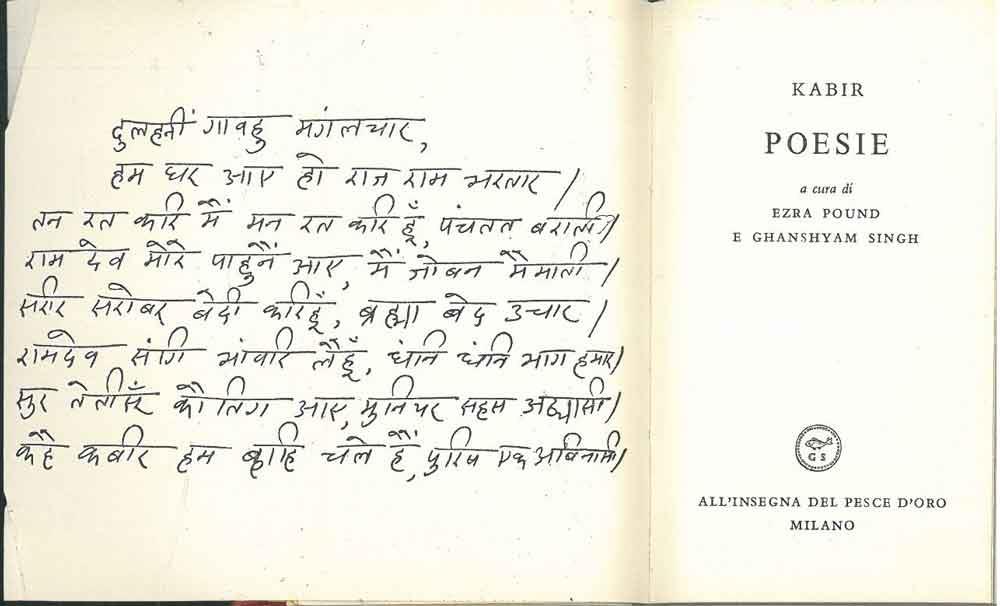 दुलहनीं गावहु मंगलचार,
हम घर आए हो राज राम भरतार /
तन रत करि मैं मन रत करि हूँ, पंचतत बराती /
राम देव मोरै पाहुनैं आए, मैं जोबन मैमाती /
सरीर सरोबर बेदी करिहूँ, ब्रह्मा बेद उचार /
रामदेव संगि भांवरि लैहूँ, धंनि धंनि भाग हमार /
सुर तेतीसूँ कौतिग आए, मुनियर सहस अठ्यासी /
कहै कबीर हम ब्याहि चले हैं, पुरिष एक अबिनासी /
KABIR
POESIE
a cura di
EZRA POUND
E GHANSHYAM SINGH
G S
ALL'INSEGNA DEL PESCE D'ORO
MILANO